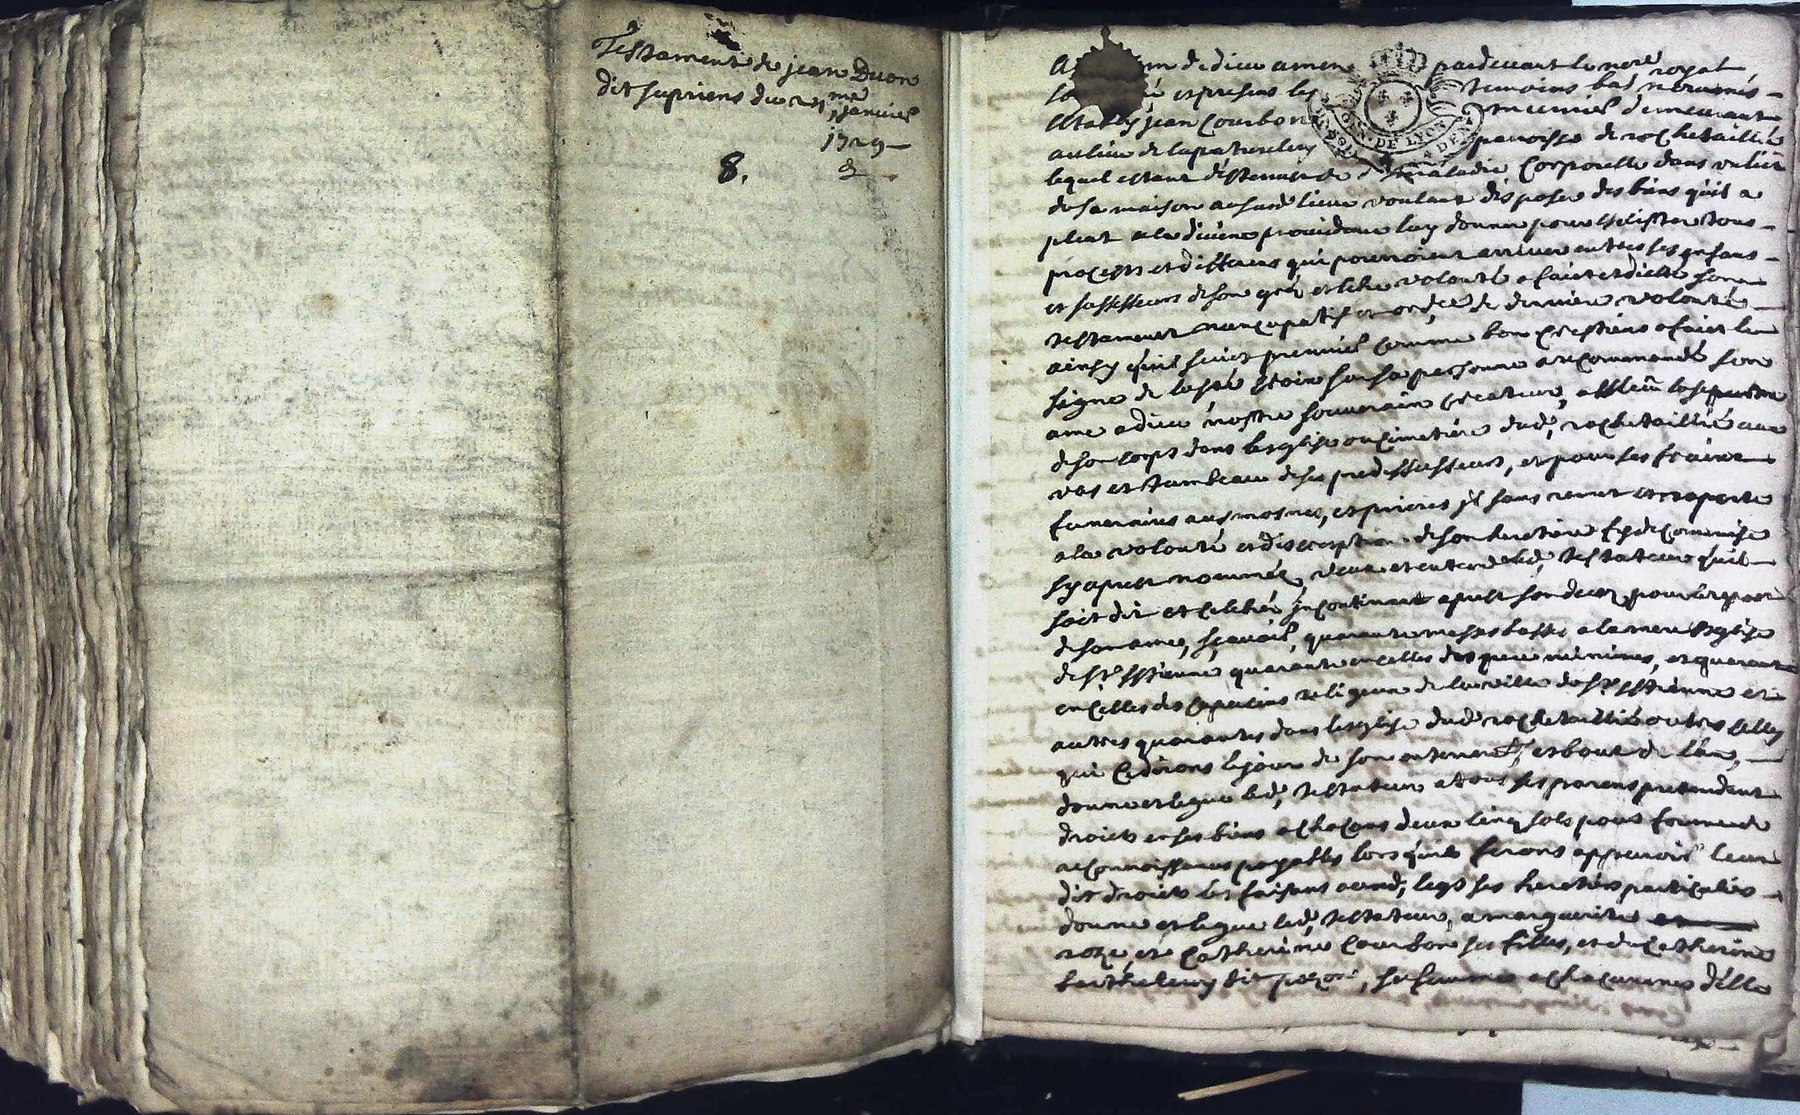 Testament de jean Duon
dit supriens du 25me janvier
1729
8.
Au nom de dieu amen pardevant le nore royal
soubsigné et presens les temoins bas nommés
estably jean Courbon meunier demeurant
au lieu de la parroisse de rochetaillée
lequel estant destenu de maladie corporelle dans un lict
de sa maison aususd lieu voulant disposer des biens qu'il a
pleut a la divine providence luy donner pour esvister tous
procests et differens qui pourroient arriver entres ses enfans
et sussesseurs de son gré et libre volonté a faict et dicté son
testament nuncupatif et ordce de derniere volonté
ainsy qu'il suict premier comme bon crestiens a faict le
signe de la ste croix sur sa personne a recommandé son
ame a dieu nostre souverain createur, esleu la sepulture
de son corps dans lesglise ou cimetiere dud, rochetaillié aux
vas et tumbeau de ses predessesseurs, et pour ses fraix
funeraires ausmosnes, et prieres il sans remet et raporte
a la volonté et discreption de son heretiere fideicommise
sy apres nommée, veux et entend led, testateur qu'il
soit dit et celebré incontinant apres son deces pour le repos
de son ame, sçavoir, quarante messes basses a la mere Esglise
de st Estienne quarante en celles des peres minimes, et quarante
en celles des capucins religieux de la ville de st Estienne et
autres quarantes dans lesglise dud rochetaillié outres celles
qui ce dirons le jour de son enterrement, et bout de l'an,
donne et legue led, testateur a tous ses parens pretendent
droicts en ses biens a chacuns deux cinq sols pour forme de
reconnoissances payables lors qu'ils ferons apparoir leur
dit droicts les faisant aud, legs ses heretiers particuliers
donne et legue led, testateur, a marguerite
roze, et catherine Courbon ses filles, et de catherine
barthelemy dit, sa femme a chacunnes d'elle